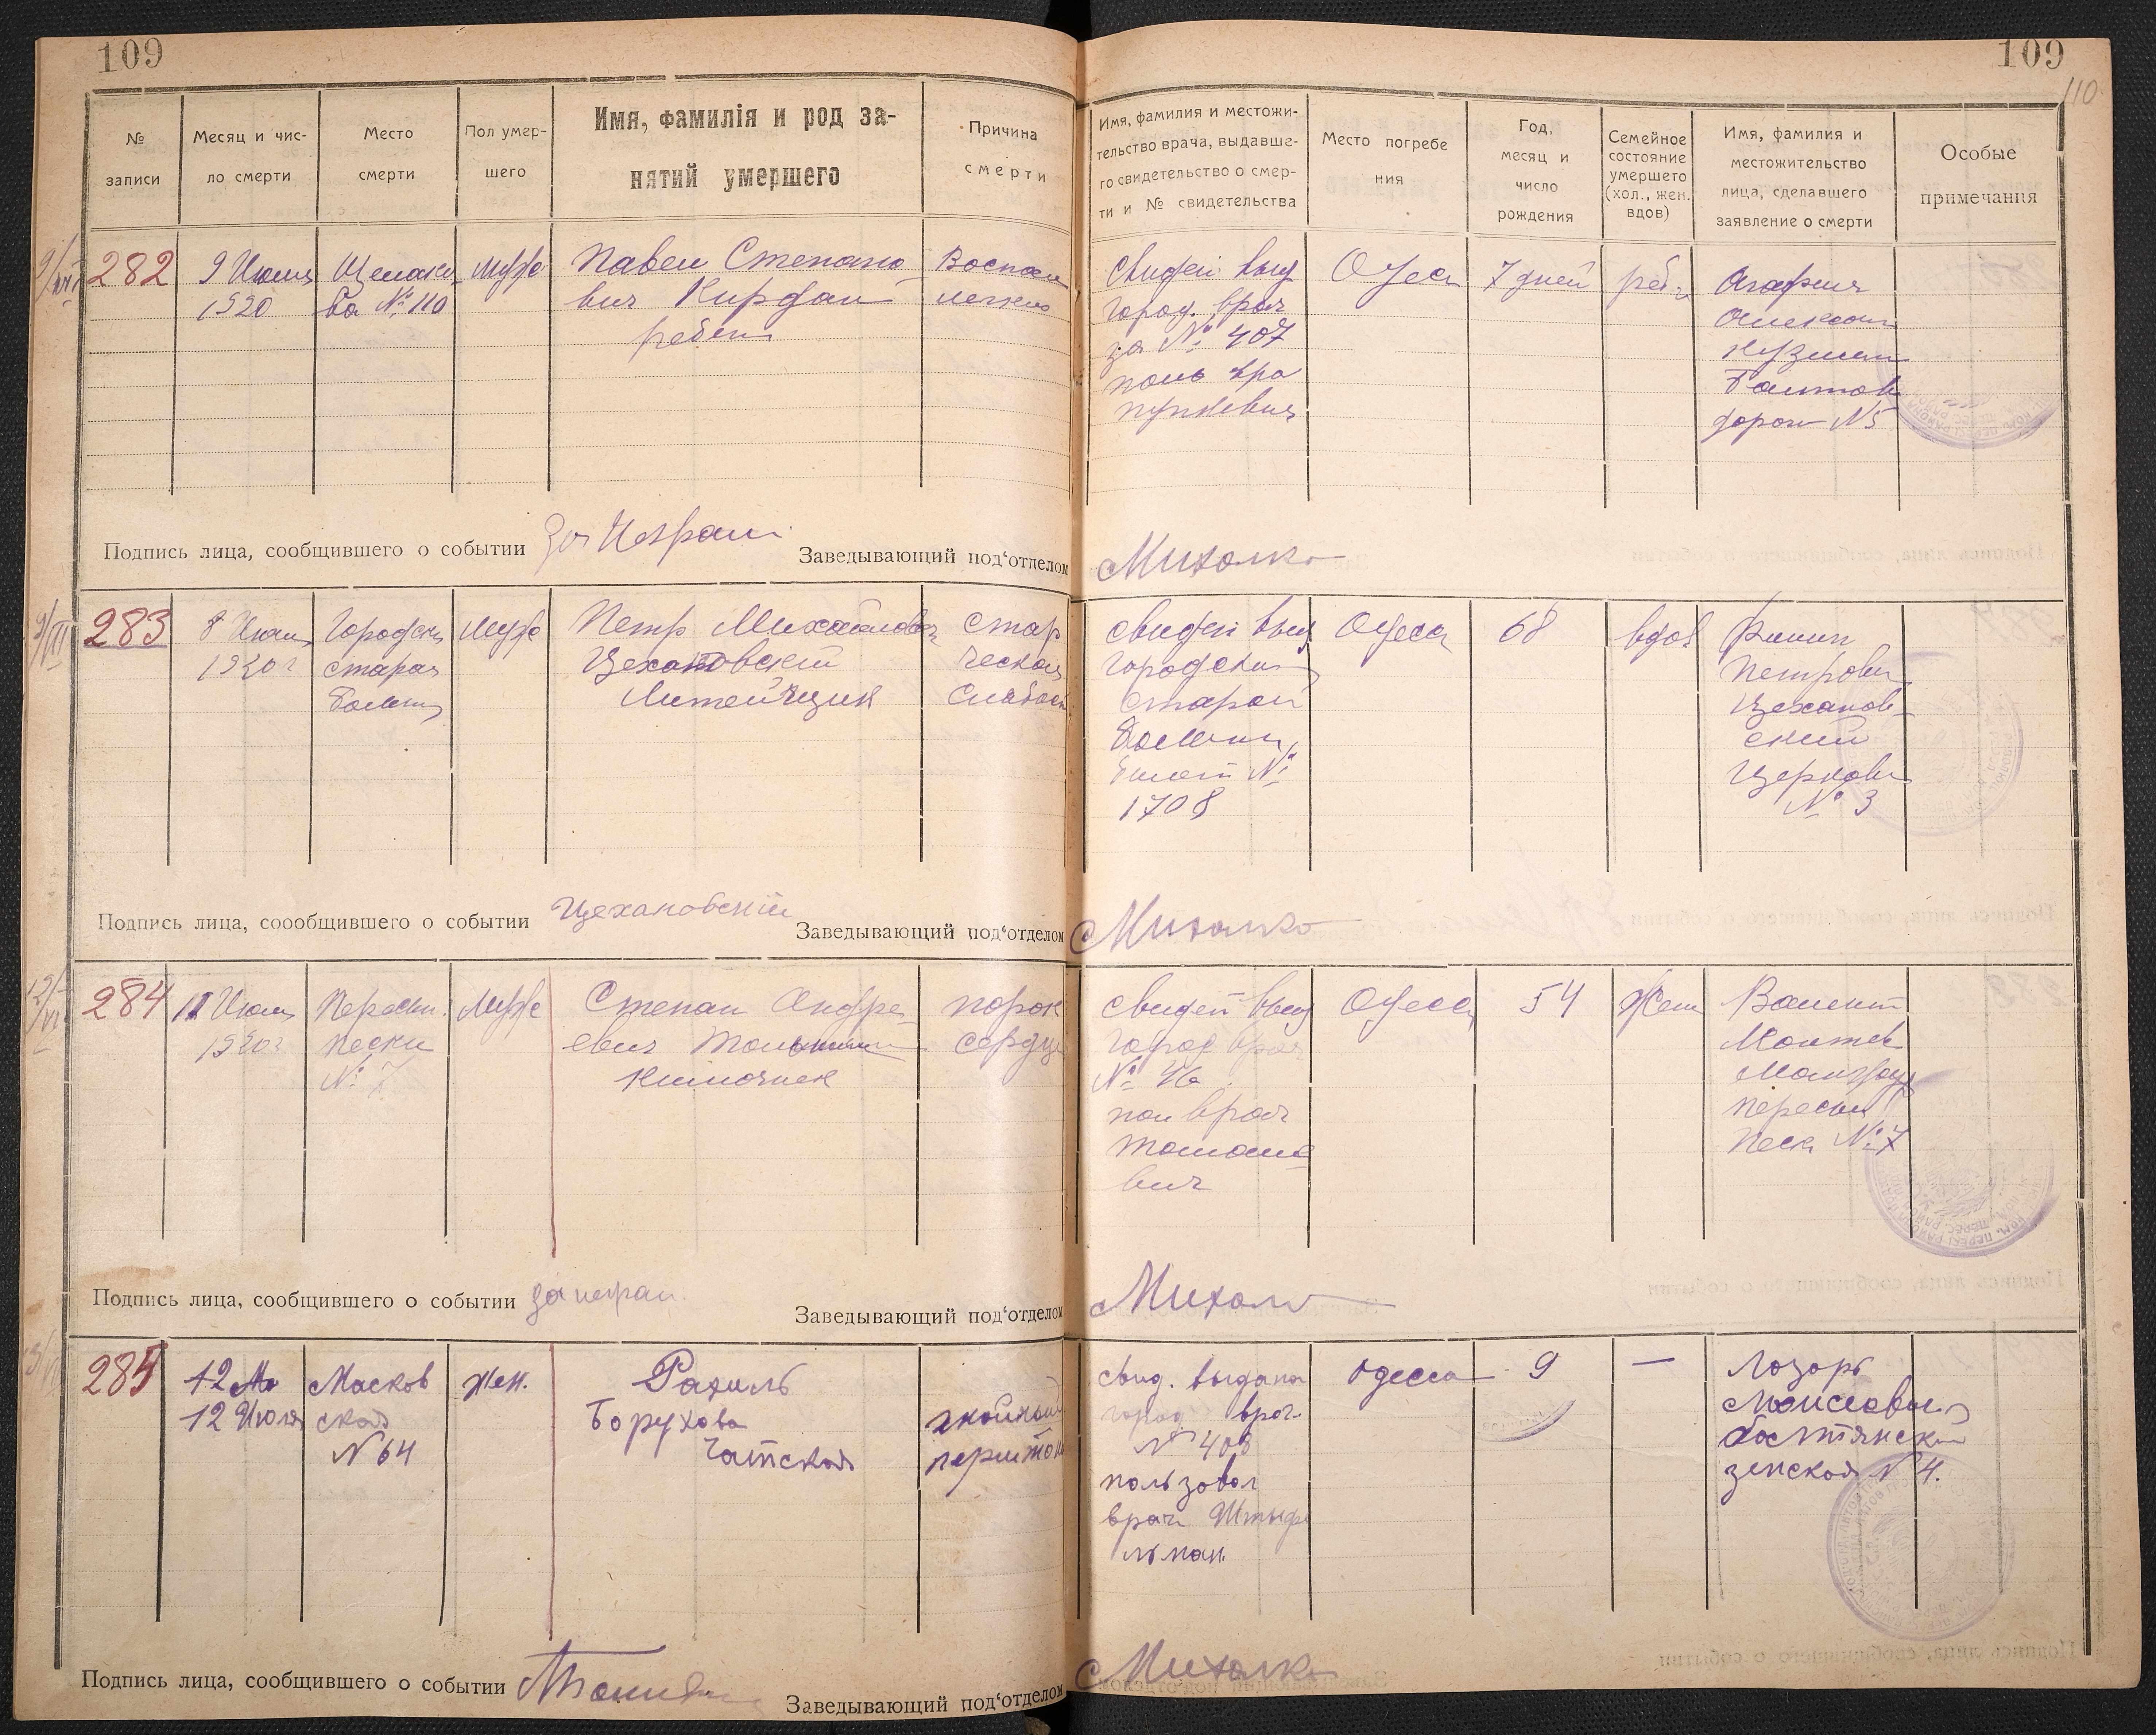 109
109
110
№
записи
Месяц и чис-
ло смерти
Место
смерти
Пол умер-
шего
Имя, фамилія и род за-
нятий умершего
Причина
смерти
Имя, фамилия и местожи-
тельство врача, выдавше-
го свидетельство о смер-
ти и № свидетельства
Место погребе
ния
Год,
месяц и
число
рождения
Семейное
состояние
умершего
(хол., жен.
вдов)
Имя, фамилия и
местожительство
лица, сделавшего
заявление о смерти
Особые
примечания
282
9 Июля
1920
№ 110
муж
Павел Степано
вич Кирдан
ребен
Воспал
легких
свидет выд
город. врач
за № 407
Одесса
7 дней
реб
Агафия
дорог N5
Подпись лица, сообщившего о событии
За неграм
Заведывающий под‘отделом
Михалко
283
8 Июля
1920 г
Городск
старая
Больн
муж
Петр Михайлович
Цехановский
Литейщик
Стар
ческая
Слабость
свидет выд
городской
Старой
Больни
билет №
1708
Одесса
68
вдов
Филип
Петрович
Цеханов-
ский
Церковн
№ 3
Подпись лица, соообщившего о событии
Цехановский
Заведывающий под‘отделом
Михалко
284
11 Июля
1920 г
Пересып.
пески
№ 7
Муж
Степан Андре
евич
порок
сердца
свидет выд
город врач
№ 46
пол врач
Томаше
вич
Одесса
54
Жен
Валент
пересып
Песк № 7
Подпись лица, сообщившего о событии
за неграм
Заведывающий под‘отделом
Михалко
285
12 Ма
12 Июля
Москов
ская
N 64
жен.
Рахиль
Борухова
Чатская
гнойный
перитон
свид. выдано
город врач.
N 403
пользовал
врач Штыфе
льман.
одесса
9
—
Лозарь
Моисеевич
N 4.
Подпись лица, сообщившего о событии
Заведывающий под‘отделом
Михалко